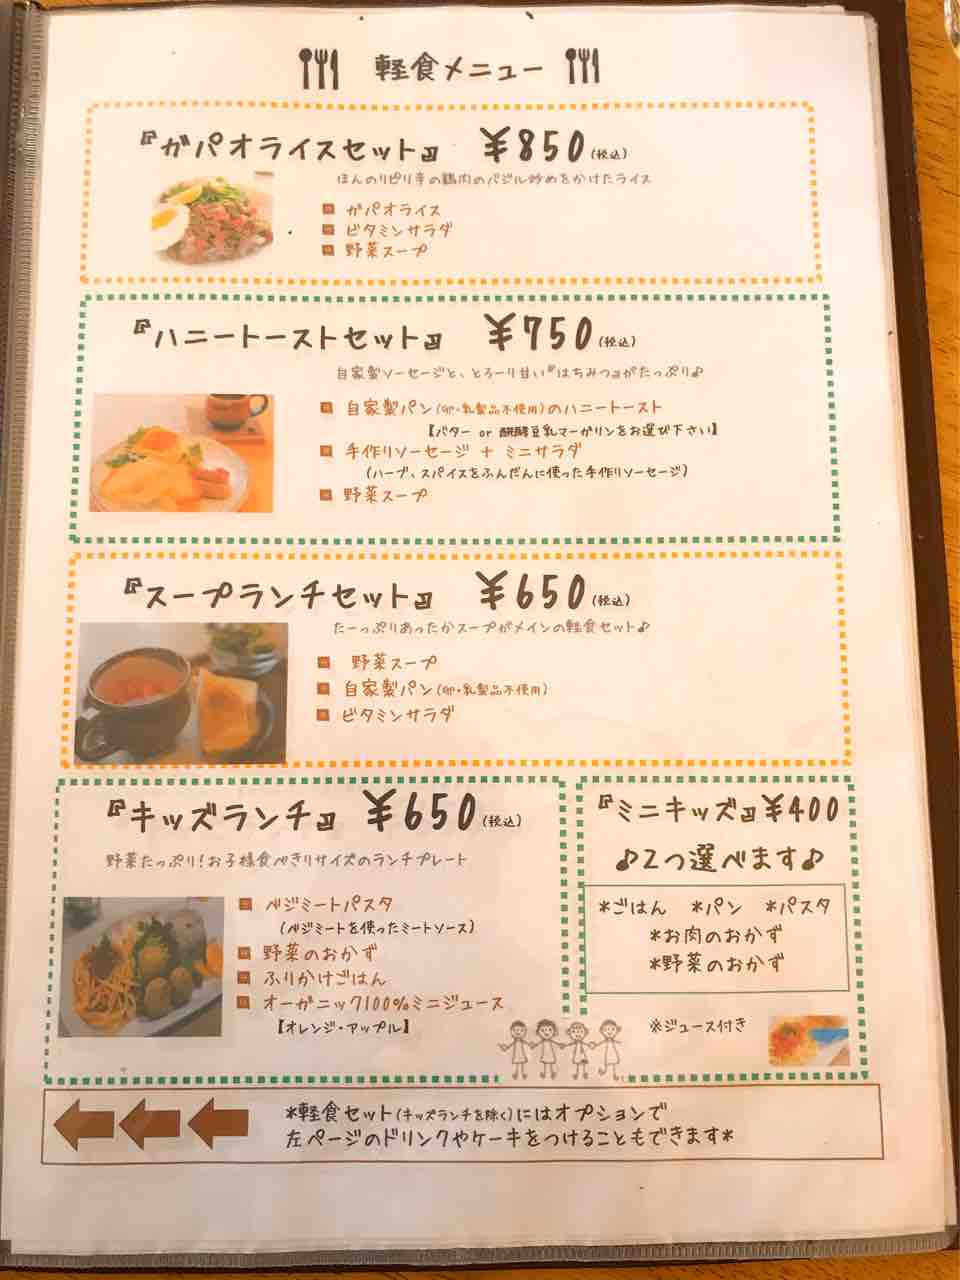 軽食メニュー
『ガパオライスセット』 ¥850(税込)
ほんのりピリ辛の鶏肉のバジル炒めをかけたライス
ガパオライス
ビタミンサラダ
野菜スープ
『ハニートーストセット』 ¥750(税込)
自家製ソーセージと、とろーり甘い『はちみつ』がたっぷり♪
自家製パン(卵・乳製品不使用)のハニートースト
【バター or 醗酵豆乳マーガリンをお選び下さい】
手作りソーセージ + ミニサラダ
(ハーブ、スパイスをふんだんに使った手作りソーセージ)
野菜スープ
『スープランチセット』 ¥650(税込)
たーっぷりあったかスープがメインの軽食セット♪
野菜スープ
自家製パン(卵・乳製品不使用)
ビタミンサラダ
『キッズランチ』 ¥650(税込)
野菜たっぷり!お子様食べきりサイズのランチプレート
ベジミートパスタ
(ベジミートを使ったミートソース)
野菜のおかず
ふりかけごはん
オーガニック100%ミニジュース
【オレンジ・アップル】
『ミニキッズ』¥400
♪2つ選べます♪
*ごはん *パン *パスタ
*お肉のおかず
*野菜のおかず
※ジュース付き
*軽食セット(キッズランチを除く)にはオプションで
左ページのドリンクやケーキをつけることもできます*